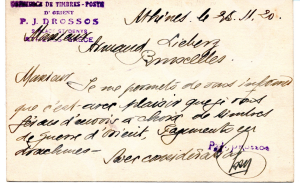 COMMERCE DE TIMBRES-POSTE
D'ORIENT
P. J. DROSSOS
Athènes, le 25.11.20.
Monsieur
Armand
Bruxelles
Monsieur
Je me permets de vous informer
que c'est avec plaisir que je vous
ferais d'envois à choix de timbres
de guerre d'Orient, Payments en
drachmes.
P. J. DROSSOS
Avec considération